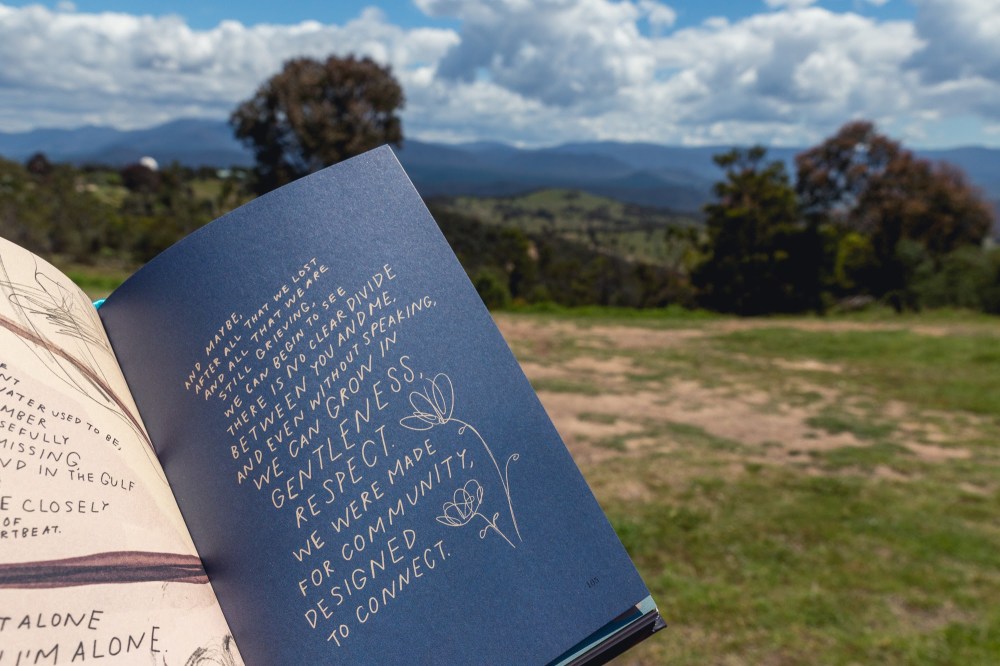 NT
WATER USED TO BE,
MBER
SEFULLY
MISSING
ND IN THE GULF
E CLOSELY
OF
RTBEAT.
T ALONE
I'M ALONE.
AND MAYBE,
AFTER ALL THAT WE LOST
AND ALL THAT WE ARE
STILL GRIEVING,
WE CAN BEGIN TO SEE
THERE IS NO CLEAR DIVIDE
BETWEEN YOU AND ME,
AND EVEN WITHOUT SPEAKING,
WE CAN GROW IN
GENTLENESS,
RESPECT.
WE WERE MADE
FOR COMMUNITY,
DESIGNED
TO CONNECT.